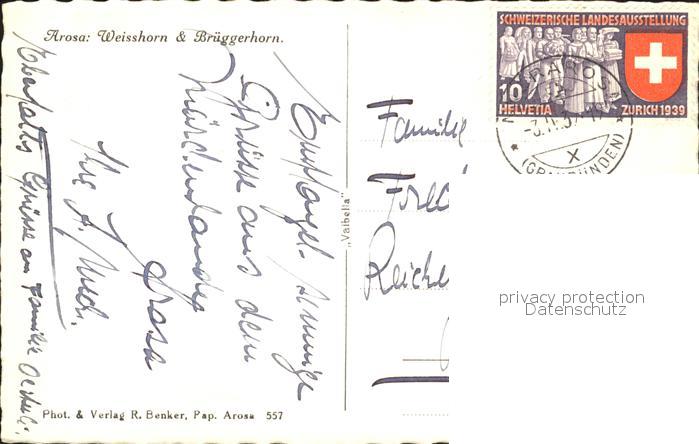 Arosa: Weisshorn & Brüggerhorn.
Empfangt sonnige
Grüsse aus dem
Märchenlandes
Arosa
Ebenfalls Grüsse an Familie
"Vaibella"
Phot. & Verlag R. Benker, Pap. Arosa 557
SCHWEIZERISCHE LANDESAUSSTELLUNG
10
HELVETIA ZURICH 1939
AROSA
X
(GRAUBÜNDEN)
Familie
privacy protection
Datenschutz